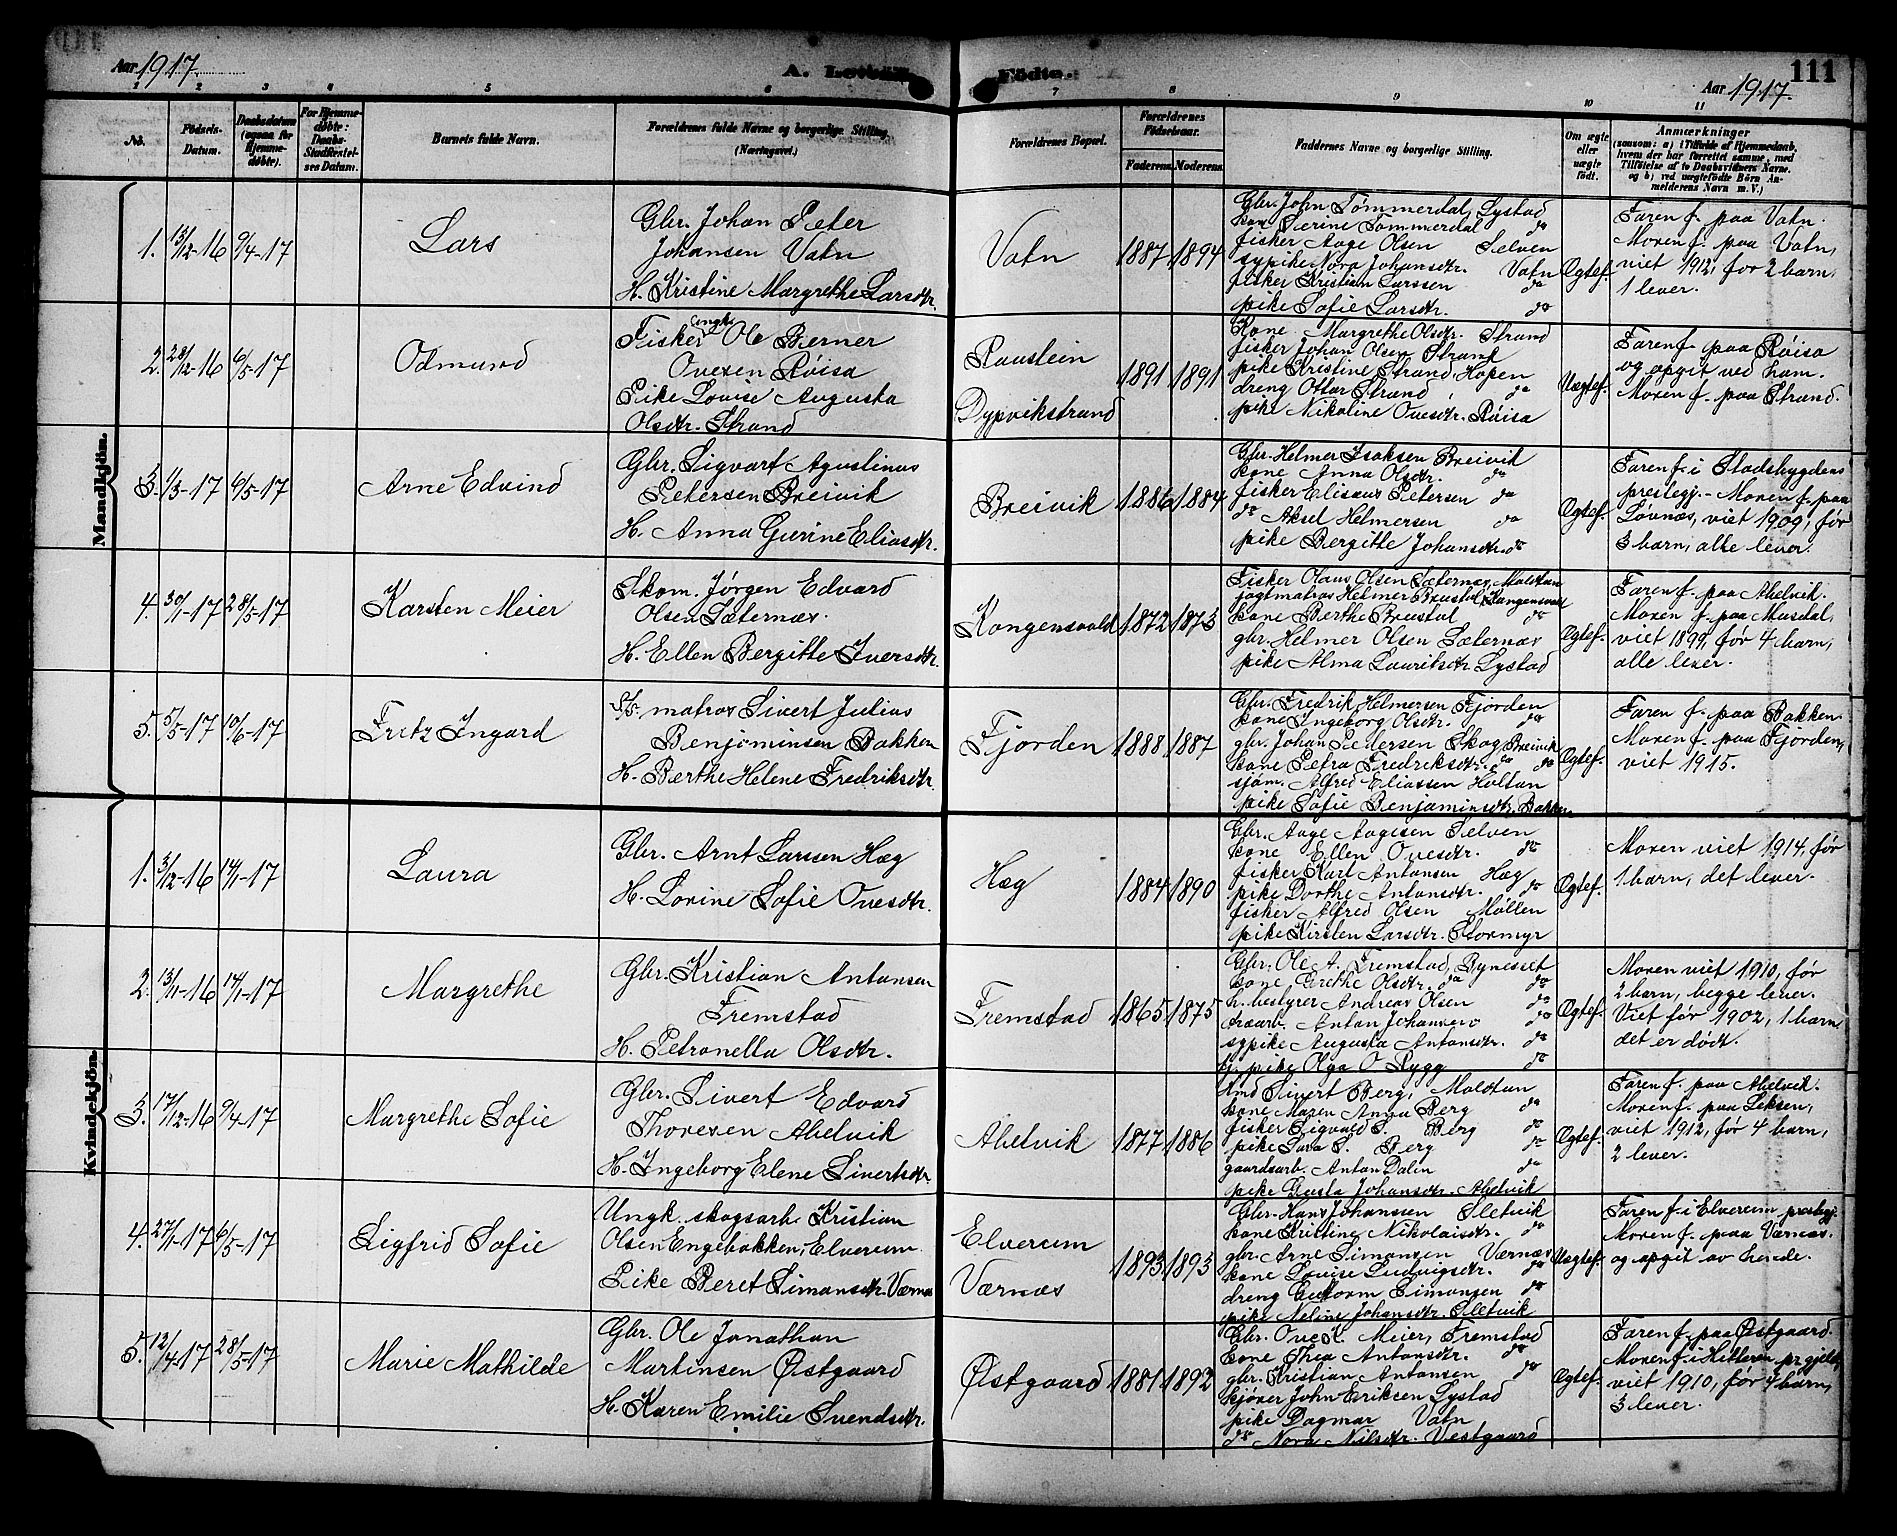 Aar 1917.
A. Levende
Fødte.
111
Aar 1917.
1 2 3 4 5 6 7 8 9 10 11
No.
Fødsels-Datum.
Daabsdatum (ogsaa for Hjemmedøbte).
For Hjemmedøbte: Daabs-Stadfæstelses Datum.
Barnets fulde Navn.
Forældrenes fulde Navne og borgerlige Stilling. (Næringsvei.)
Forældrenes Bopæl.
Forældrenes Fødselsaar.
Faderens. Moderens.
Faddernes Navne og borgerlige Stilling.
Om ægte eller uægte født.
Anmærkninger
(saasom: a) i Tilfælde af Hjemmedaab, hvem der har forrettet samme, med Tilføielse af to Daabsvidners Navne, og b) ved uægtefødte Børn Anmelderens Navn m. V.)
Mandkjön.
1. 13/12-16 9/4-17
Lars
Gbr. Johan Peter
Johansen Vatn
H. Kristine Margrethe Larsdtr.
Vatn
1887 1894
Gbr. John Tømmerdal, Lystad
kone Serine Tømmerdal do
fisker Aage Olsen Selven
sypike Nora Johansdtr. Vatn
fisker Kristian Larssen do
pike Sofie Larsdtr. do
Ægtef.
Faren f. paa Vatn.
Moren f. paa Vatn,
viet 1912, før 2 barn,
1 lever.
2. 28/12-16 6/5-17
Odmund
Fisker ungk. Ole Berner
Ovesen Røisa
Pike Lovise Augusta
Olsdtr. Strand
Raustein
Dypvikstrand
1891 1891
Kone Margrethe Olsdtr. Strand
fisker Johan Olsen Strand
pike Kristine Strand, Hopen
dreng Ottar Strand, do
pike Nikoline Ovesdtr. Røisa
Uægtef.
Faren f. paa Røisa
og opgit ved ham.
Moren f. paa Strand.
3. 1/3-17 6/5-17
Arne Edvind
Gbr. Sigvart Agustinus
Petersen Breivik
H. Anna Gurine Eliasdtr.
Breivik
1886 1884
Gbr. Helmer Isaksen Breivik
kone Anna Olsdtr. do
fisker Elisæus Petersen do
do Aksel Helmersen do
pike Bergitte Johansdtr. do
Ægtef.
Faren f. i Stadsbygdens
prestegj. - Moren f. paa
Løvnæs, viet 1909, før
3 barn, alle lever.
4. 30/1-17 28/5-17
Karsten Meier
Skom. Jørgen Edvard
Olsen Sæternæs.
H. Ellen Bergitte Iversdtr.
Kongensvold
1872 1873
Fisker Olaus Olsen Sæternæs, Moldtun
jagtmatros Helmer Brustad, Kongensvold
kone Berthe Brustad do
gbr. Helmer Olsen Sæternæs
pike Alma Lauritsdtr. Lystad
Ægtef.
Faren f. paa Abelvik.
Moren f. paa Musdal,
viet 1899, før 4 barn,
alle lever.
5. 5/5-17 10/6-17
Fritz Ingard
S/S. matros Sivert Julius
Benjaminsen Bakken
H. Berthe Helene Fredriksdtr.
Fjorden
1888 1887
Gbr. Fredrik Helmersen Fjorden
kone Ingeborg Olsdtr. do
gbr. Johan Pedersen Skog Breivik
kone Petra Fredriksdtr. do do
sjøm. Alfred Eliassen Holtan
pike Sofie Benjaminsdtr. Bakken
Ægtef.
Faren f. paa Bakken.
Moren f. paa Fjorden,
viet 1915.
Kvindekjön.
1. 3/12-16 14/1-17
Laura
Gbr. Arnt Larssen Hæg
H. Lovine Sofie Ovesdtr.
Hæg
1884 1890
Gbr. Aage Aagesen Selven
kone Ellen Ovesdtr. do
fisker Karl Antonsen Hæg
pike Dorthe Antonsdtr. do
fisker Alfred Olsen Møllen
pike Kirsten Larsdtr. Stormyr
Ægtef.
Moren viet 1914, før
1 barn, det lever.
2. 13/11-16 14/1-17
Margrethe
Gbr. Kristian Antonsen
Fremstad
H. Petronella Olsdtr.
Fremstad
1865 1875
Gbr. Ole A. Fremstad, Bynesset
kone Grethe Olsdtr. do do
h. bestyrer Andreas Olsen do
Anton Johansen do
sypike Augusta Antonsdtr. do
tj. pike Olga O Rygg do
Ægtef.
Moren viet 1910, før
2 barn, begge lever.
Viet før 1902, 1 barn,
det er dødt.
3. 17/12-16 9/4-17
Margrethe Sofie
Gbr. Sivert Edvard
Thoresen Abelvik
H. Ingeborg Elene Sivertsdtr.
Abelvik
1877 1886
Sivert Berg, Moldtun
kone Maren Anna Berg do
fisker Sigvald S. Berg do
pike Sara S. Berg do
gaardsarb. Anton Dalen do
pike Gusta Johansdtr. Abelvik
Ægtef.
Faren f. paa Abelvik.
Moren f. paa Leksen,
viet 1912, før 4 barn,
2 lever.
4. 27/1-17 6/5-17
Sigfrid Sofie
Ungk. skogsarb. Kristian
Olsen Engebakken, Elverum.
Pike Beret Simonsdtr. Værnæs
Elverum
Værnæs
1893 1893
Gbr. Hans Johansen Sletvik
kone Kristine Nikolaisdtr. do
gbr. Arne Simonsen Værnæs
kone Lovise Ludvigsdtr. do
dreng Guttorm Simonsen do
pike Neline Johansdtr. Sletvik
Uægtef.
Faren f. i Elverum prestegj.
Moren f. paa Værnæs.
og opgit av hende.
5. 12/4-17 28/5-17
Marie Mathilde
Gbr. Ole Jonathan
Martinsen Østgaard
H. Karen Emilie Svendsdtr.
Østgaard
1881 1892
Gbr. Ove K. Meier, Fremstad
kone Thea Antonsdtr. do
gbr. Kristian Antonsen do
skjøner John Eriksen Lystad
pike Dagmar Vatn
do Nora Nilsdtr. Vestgaard
Ægtef.
Faren f. paa Østgaard.
Moren f. i Hitteren pr.gjeld,
viet 1910, før 4 barn,
3 lever.